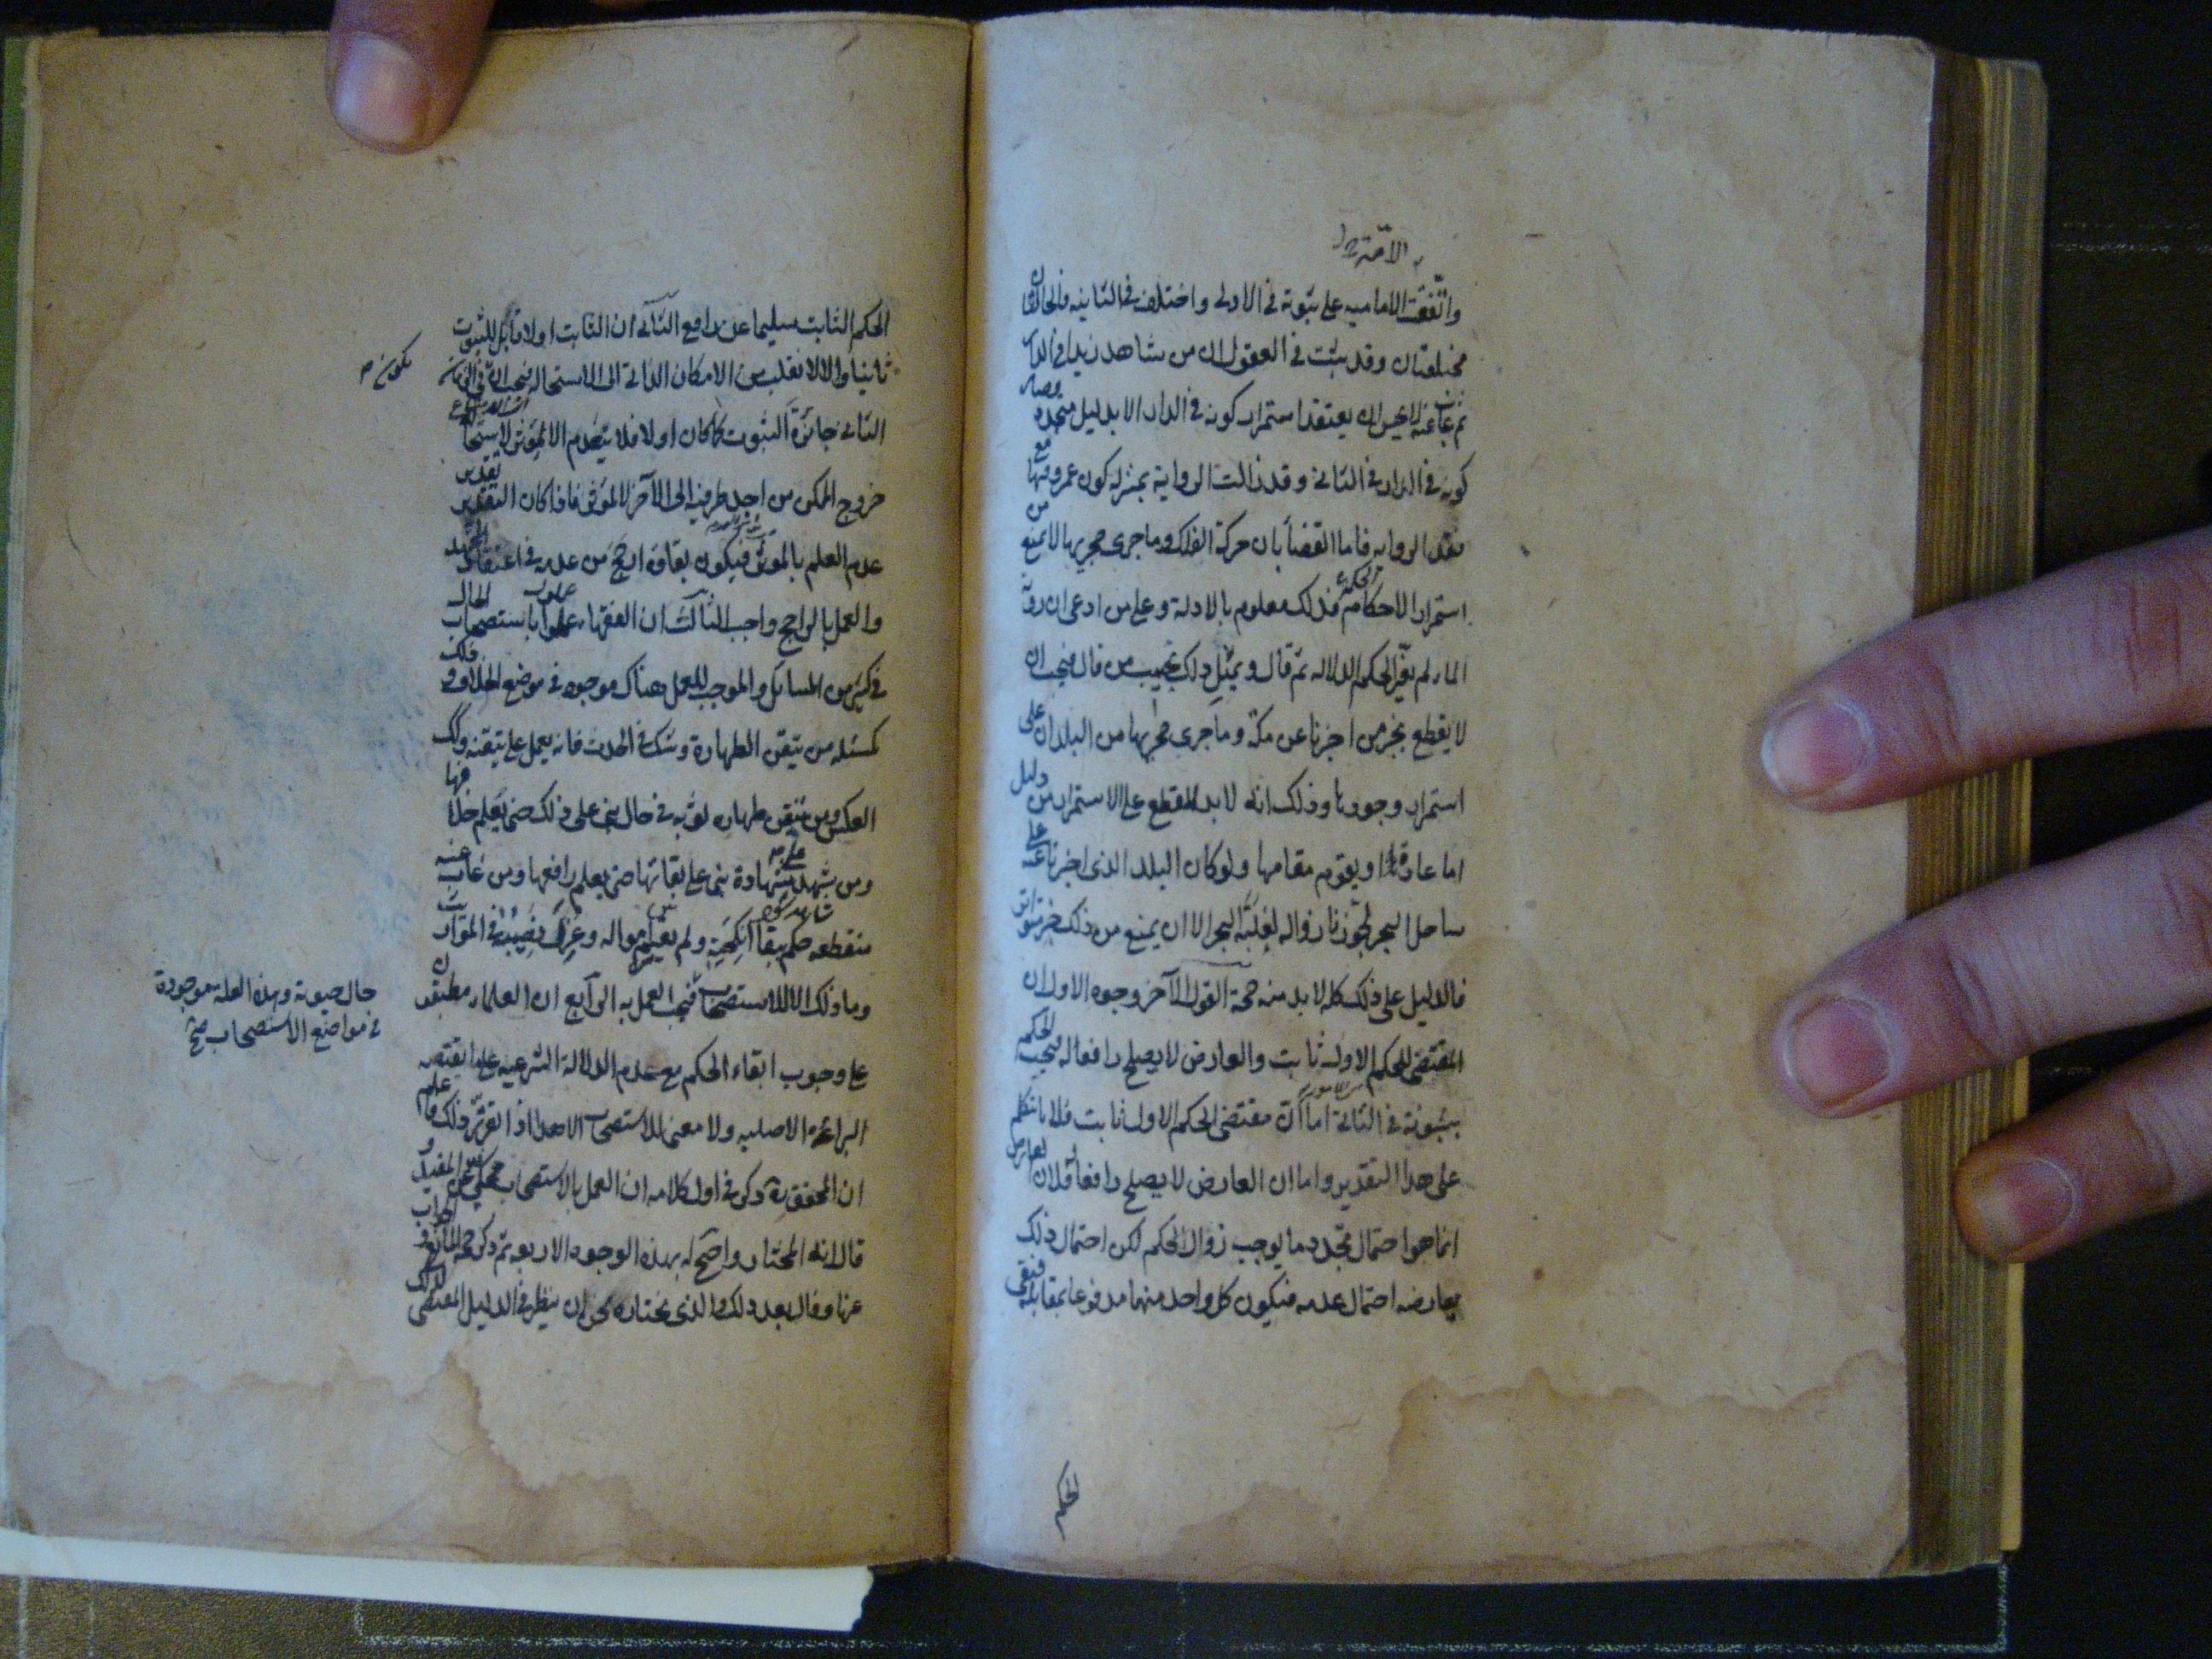 الامة
واتفقت الامامية على ثبوته في الاولى واختلف في الثانية فالحالتان
مختلفتان وقد ثبت في العقول ان من شاهد زيدا في الدار
ثم غاب عنه لا يحسن ان يعتقد استمرار كونه في الدار الا بدليل متجدد وصار
كونه في الدار في الثاني وقد زالت الرواية بمنزلة كون عمرو فيها مع
فقد الرواية فاما القضاء بان حركة الفلك وما جرى مجريها لا يمنع من
استمرار الاحكام فذلك معلوم بالادلة وعلى من ادعى ان روية
الماء لم تغير الحكم الدلالة ثم قال وبمثل ذلك نجيب من قال فيجب ان
لا يقطع بخبر من اخبرنا عن مكة وما جرى مجريها من البلدان على
استمرار وجودها وذلك انه لا بد للقطع على الاستمرار من دليل
اما عادة او يقوم مقامها ولو كان البلد الذي اخبرنا عنه على
ساحل البحر لجوزنا زواله لغلبة البحر الا ان يمنع من ذلك خبر متواتر
فالدليل على ذلك كله لا بد منه حجة القول الآخر وجوه الاول ان
المقتضى للحكم الاول ثابت والعارض لا يصلح رافعا له فيجب الحكم
بثبوته في الثاني اما ان مقتضى الحكم الاول ثابت فلانا نتكلم
على هذا التقدير واما ان العارض لا يصلح رافعا فلان العارض
انما هو احتمال تجدد ما يوجب زوال الحكم لكن احتمال ذلك
يعارضه احتمال عدمه فيكون كل واحد منهما مدفوعا بمقابله فيبقى
الحكم
الحكم الثابت سليما عن رافع الثاني ان الثابت اولا قابل للثبوت
ثانيا والا لانقلب من الامكان الذاتي الى الاستحالة فيجب ان في الزمان
يكون
الثاني جائز الثبوت كما كان اولا فلا ينعدم الا لمؤثر لاستحالة
خروج الممكن من احد طرفيه الى الآخر لا لمؤثر فاذا كان التقدير تقدير
عدم العلم بالمؤثر فيكون بقاؤه ارجح من عدمه في اعتقاد المجتهد
والعمل بالراجح واجب الثالث ان الفقهاء عملوا باستصحاب الحال
في كثير من المسائل والموجب للعمل هناك موجود في موضع الخلاف وذلك
كمسئلة من تيقن الطهارة وشك في الحدث فانه يعمل على تيقنه وكذلك
العكس ومن تيقن طهارة ثوبه في حال بنى على ذلك حتى يعلم خلافها
ومن شهد بشهادة بنى على بقائها حتى يعلم رافعها ومن غاب غيبة
منقطعة حكم ببقاء انكحته ولم تقسم امواله وعزل نصيبه في المواريث
وما ذلك الا للاستصحاب فيجب العمل به الرابع ان العلماء مطبقون
حال حيوته وهذه العلة موجودة
في مواضع الاستصحاب صح
على وجوب ابقاء الحكم مع عدم الدلالة الشرعية على ما يقتضيه
البراءة الاصلية ولا معنى للاستصحاب الا هذا اذا تقرر ذلك فاعلم
ان المحقق ره ذكر في اول كلامه ان العمل بالاستصحاب محكي عن المفيد و
قال انه المختار واحتج له بهذه الوجوه الاربعة ثم ذكر حجة المانع والجواب
عنها وقال بعد ذلك والذي نختاره نحن ان ينظر في الدليل المقتضى لذلك